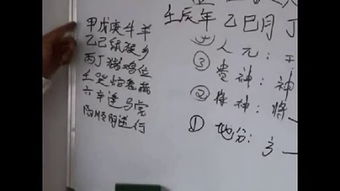 甲戊庚牛羊
乙己鼠猴乡
丙丁猪鸡位
壬癸兔
六辛逢马
行
壬辰年 乙巳月 丁
人元:
③ 贵神: 神
② 将神: 将
① 地分: